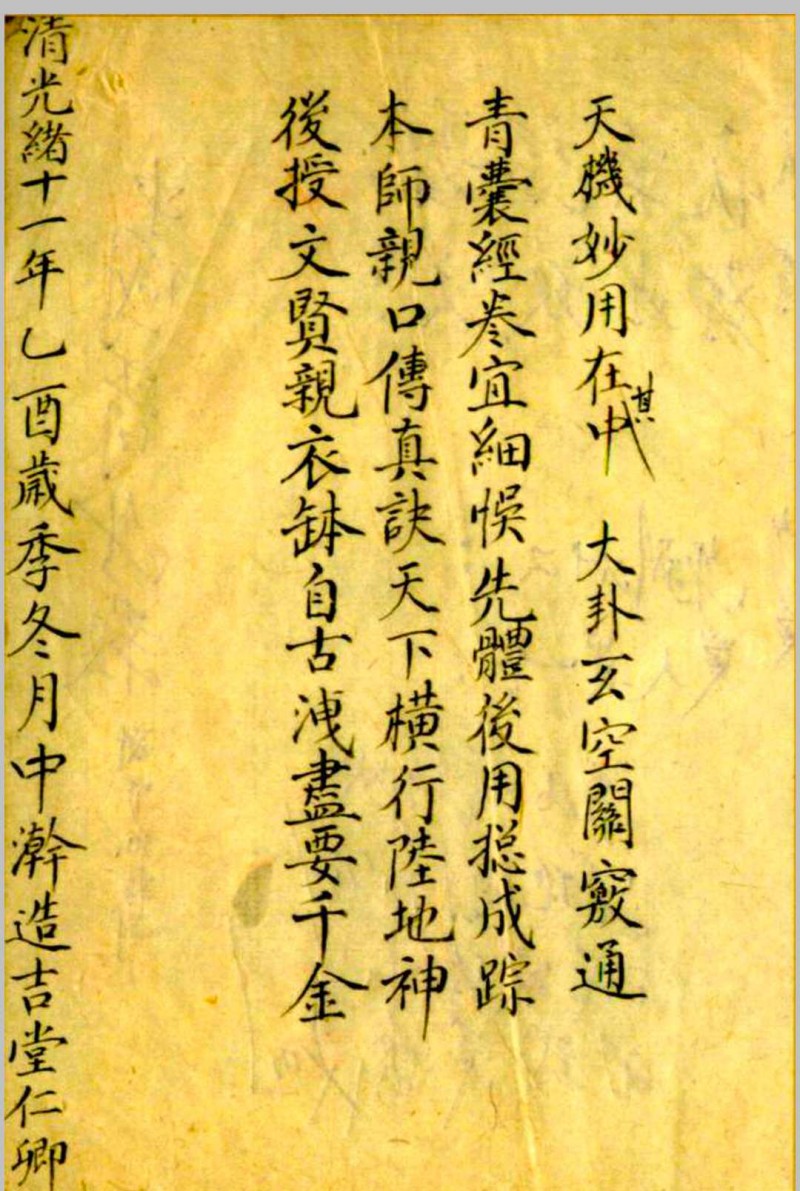 天機妙用在其中 大卦玄空關竅通
青囊經卷宜細悮先體後用摠成踪
本師親口傳真訣天下橫行陸地神
後授文賢親衣缽自古洩盡要千金
清光緒十一年乙酉歲季冬月中澣造吉堂仁卿